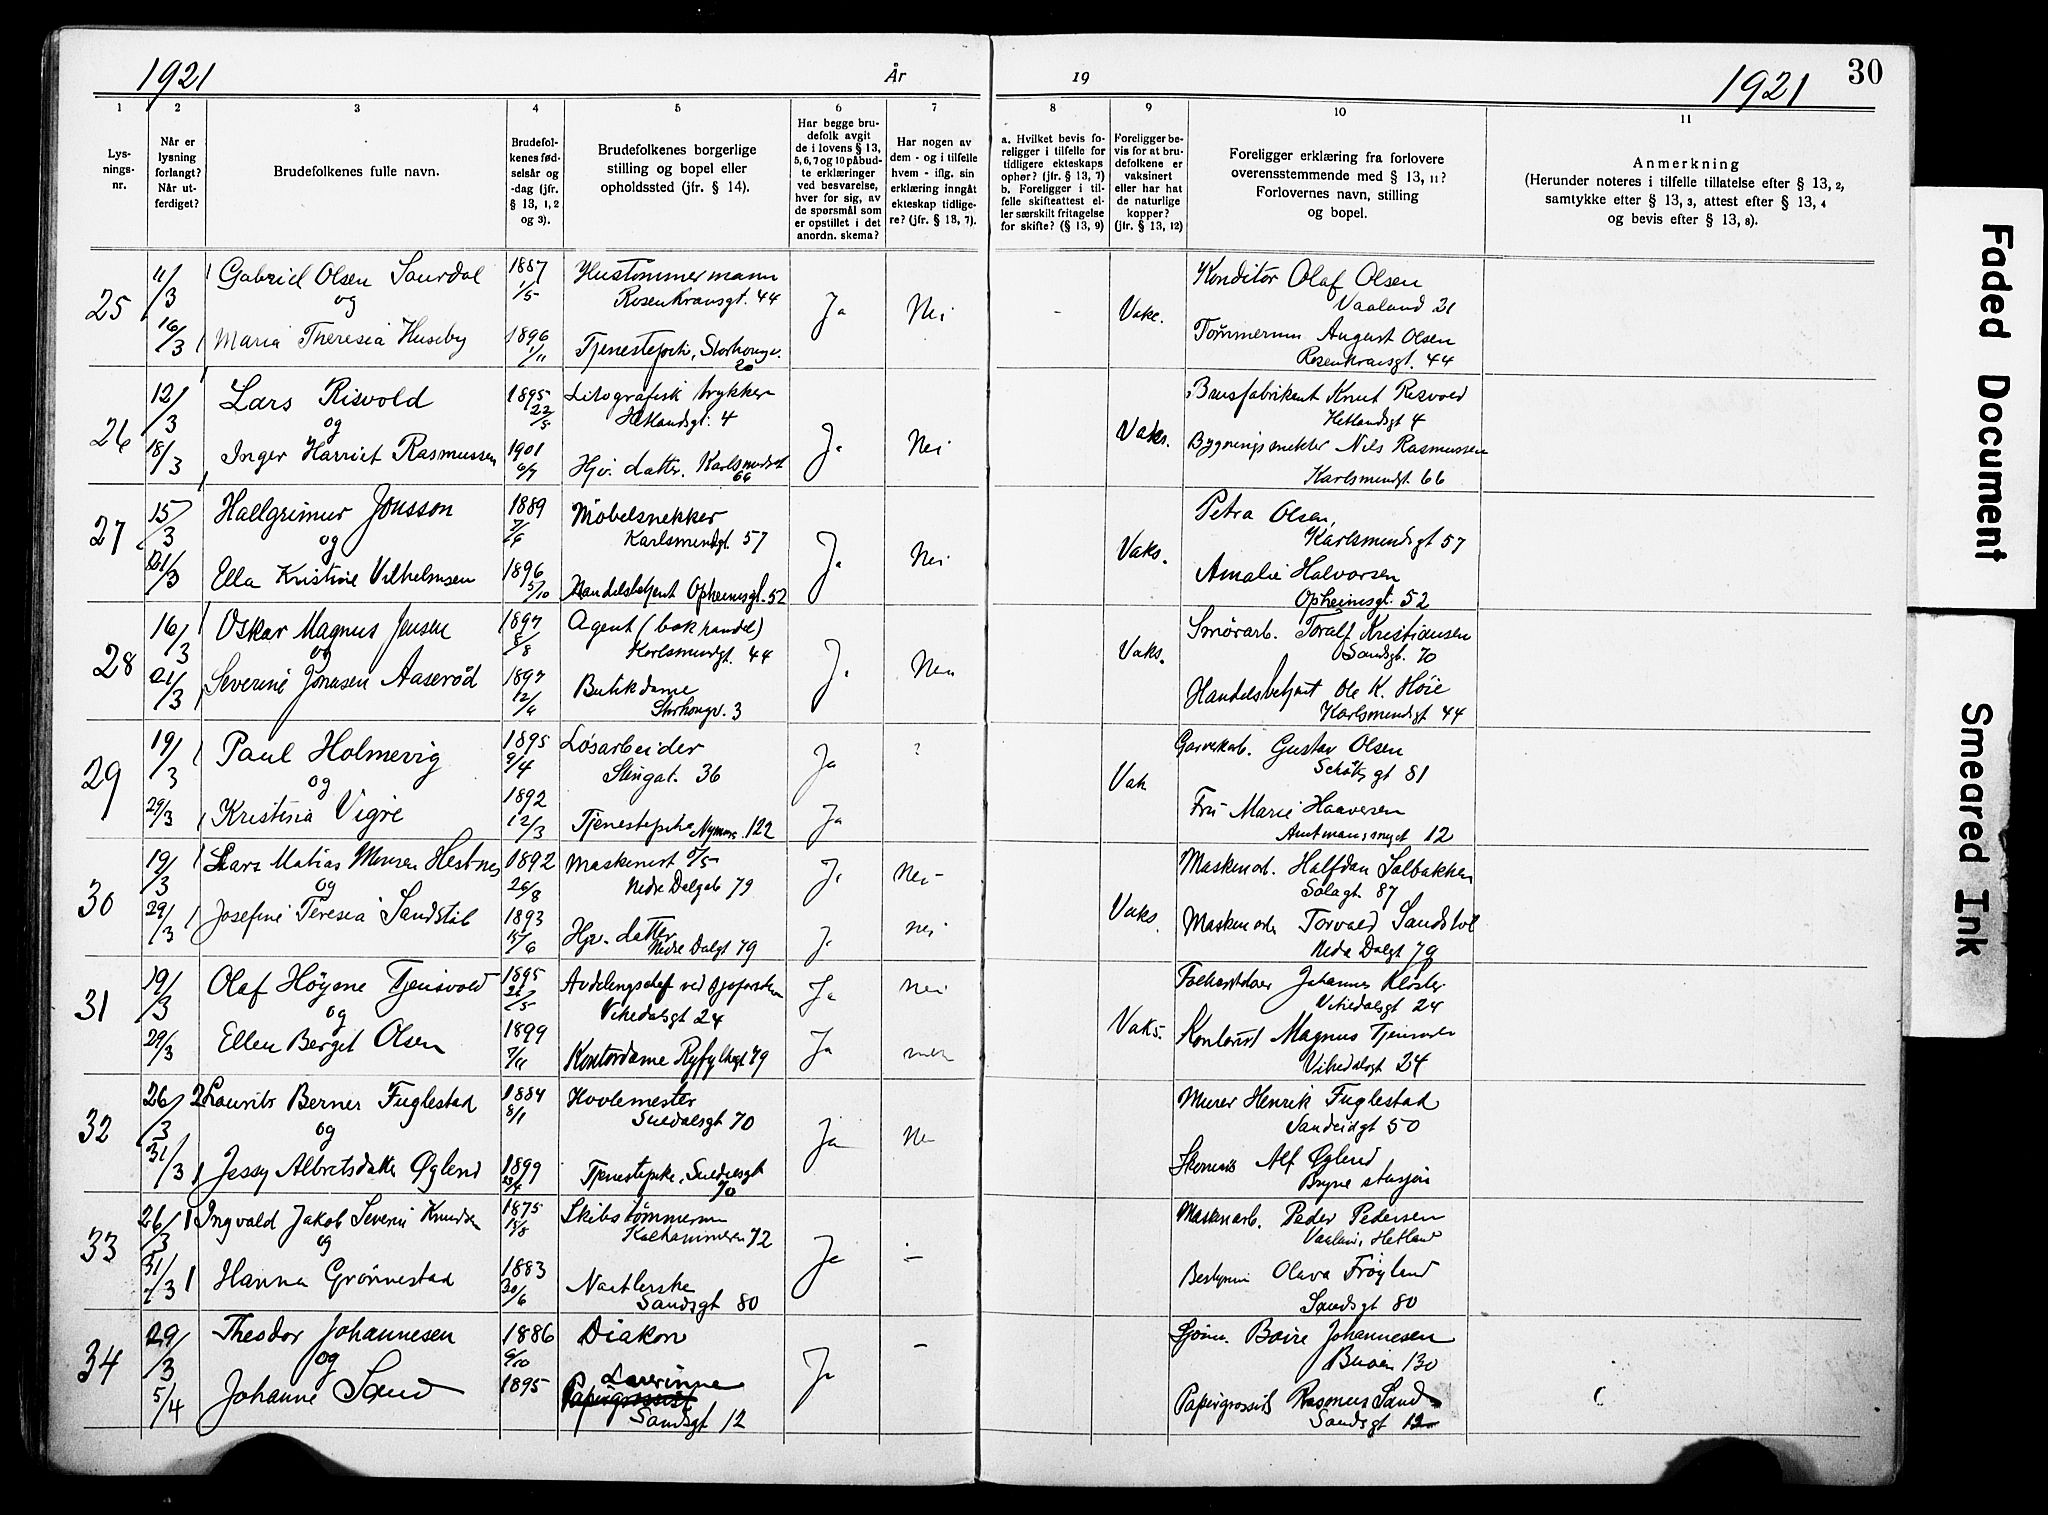 1921 År 19 1921 30
1 2 3 4 5 6 7 8 9 10 11
Lys-
nings-
nr.
Når er
lysning
forlangt?
Når ut-
ferdiget?
Brudefolkenes fulle navn.
Brudefol-
kenes fød-
selsår og
-dag (jfr.
§ 13, 1, 2
og 3).
Brudefolkenes borgerlige
stilling og bopel eller
opholdssted (jfr. § 14).
Har begge bru-
defolk avgit
de i lovens § 13,
5, 6, 7 og 10 påbud-
te erklæringer
ved besvarelse,
hver for sig, av
de spørsmål som
er opstillet i det
anordn. skema?
Har nogen av
dem - og i tilfelle
hvem - iflg. sin
erklæring inngåt
ekteskap tidlige-
re? (jfr. § 13, 7).
a. Hvilket bevis fo-
religger i tilfelle for
tidligere ekteskaps
opher? (jfr. § 13, 7)
b. Foreligger i til-
felle skifteattest el-
ler særskilt fritagelse
for skifte? (§ 13, 9)
Foreligger be-
vis for at bru-
defolkene er
vaksinert
eller har hat
de naturlige
kopper? (jfr. § 13, 12)
Foreligger erklæring fra forlovere
overensstemmende med § 13, 11?
Forlovernes navn, stilling
og bopel.
Anmerkning
(Herunder noteres i tilfelle tillatelse efter § 13, 2,
samtykke efter § 13, 3, attest efter § 13, 4
og bevis efter § 13, 8).
25 11/3 Gabriel Olsen Saurdal 1887 Hustømmermann Konditor Olaf Olsen
og 1/5 Rosenkransgt. 44 Ja Nei - Vakc. Vaaland 21
16/3 Maria Theresia Huseby 1896 Tjenestepike, Storhougv. Tømmerm August Olsen
1/11 20 Rosenkransgt. 44
26 12/3 Lars Risvold 1895 Litografisk trykker Brusfabrikant Knut Risvold
og 22/5 Hetlandsgt. 4 Ja Nei Vaks. Hetlandsgt 4
18/3 Inger Harriet Rasmussen 1901 Hjv. datter. Karlsmindegt Bygningsmekler Nils Rasmussen
6/7 66 Karlsmindgt 66
27 15/3 Hallgrimur Jonsson 1889 Møbelsnekker Petra Olsen,
og 7/6 Karlsmindgt 57 Ja Nei Vaks. Karlsmindsgt 57
21/3 Ella Kristine Vilhelmsen 1896 Handelsbetjent Opheimsgt. 52 Amalie Halvorsen
5/10 Opheimsgt. 52
28 16/3 Oskar Magnus Jensen 1897 Agent (bokhandel) Smørarb. Toralf Kristiansen
og 5/8 Karlsmindgt. 44 Ja Nei Vaks. Sandsgt. 70
21/3 Severine Jonasen Aaserød 1897 Butikdame Handelsbetjent Ole K. Høie
12/6 Storhougv. 3 Karlsmindsgt 44
29 19/3 Paul Holmevig 1895 Løsarbeider Ja ? Garvekarb. Gustav Olsen
og 9/4 Stingat. 36 Vak gt 81
29/3 Kristina Vigre 1892 Tjenestepike Nymans. 122 Ja Fru Marie Haaversen
12/3 12
30 19/3 Lars Matias Monsen Hestnes 1892 Maskinist Ja Nei- Maskinarb. Halfdan Solbakken
og 26/8 Nedre Dalgt 79 Vaks. Solagt. 87
29/3 Josefine Teresia Sandstøl 1893 Hjv. datter Ja nei Maskinarb Torvald Sandstøl
15/6 Nedre Dalgt 79 Nedre Dalgt 79
31 19/3 Olaf Höyne Tjensvold 1895 Avdelingschef ved Ja Nei Johannes Kloster
og 21/5 Vikedalsgt 24 Vaks. Vikedalsgt 24
29/3 Ellen Berget Olsen 1899 Kontordame Ryfylkegt 79 Ja nei Kontorist Magnus Tjensvold
7/11 Vikedalsgt 24
32 26/3 2 Laurits Berner Fuglestad 1884 Hovlemester Murer Henrik Fuglestad
og 8/1 Suldalsgt 70 Ja Nei Sandeidgt 50
31/3 1 Jessy Albretsdatter Øglend 1899 Tjenestepike, Suldalsgt Alf Øglend
23/4 70 Bryne stasjon
33 26/3 1 Ingvald Jakob Severin Knudsen 1875 Skibstømmerm Maskinarb. Peder Pedersen
og 15/8 Kalhammeren 72 Ja - Vaaland, Hetland
31/3 1 Hanna Grønnestad 1883 Naatlerske Bestyrerin Olava Frøyland
30/6 Sandsgt 80 Sandsgt 80
34 29/3 Theodor Johannesen 1886 Diakon - Sjöm. Boire Johannesen
og 9/10 Ja Buøen 130
5/4 Johanne Sand 1895 Lærerinne Papirgrossist Rasmus Sand
Papirgrossist
Sandsgt 12 Sandsgt 12
Faded Document
Smeared Ink